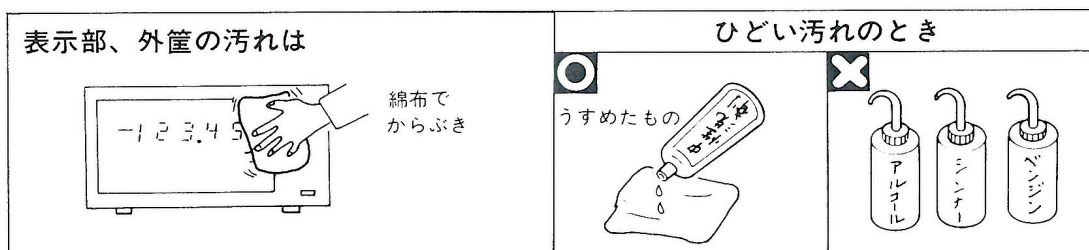 表示部、外筐の汚れは
-123.45
綿布で
からぶき
ひどい汚れのとき
うすめたもの
中性
アルコール
シンナー
ベンジン